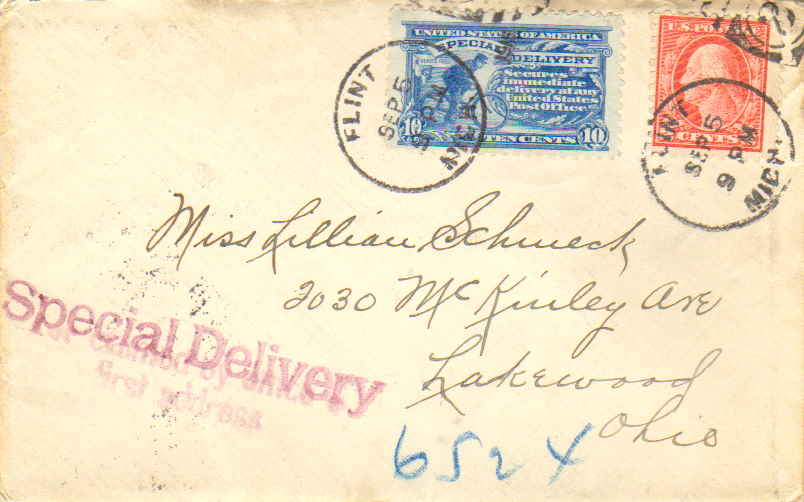 UNITED STATES OF AMERICA
SPECIAL DELIVERY
Secures
immediate
delivery at any
United States
Post Office
10 TEN CENTS 10
U.S. POSTAGE
CENTS
FLINT
SEP 5
9 PM
MICH.
FLINT
SEP 5
9 PM
MICH.
Miss Lillian Schmeck
2030 McKinley Ave
Lakewood
Ohio
Special Delivery
first address
6524